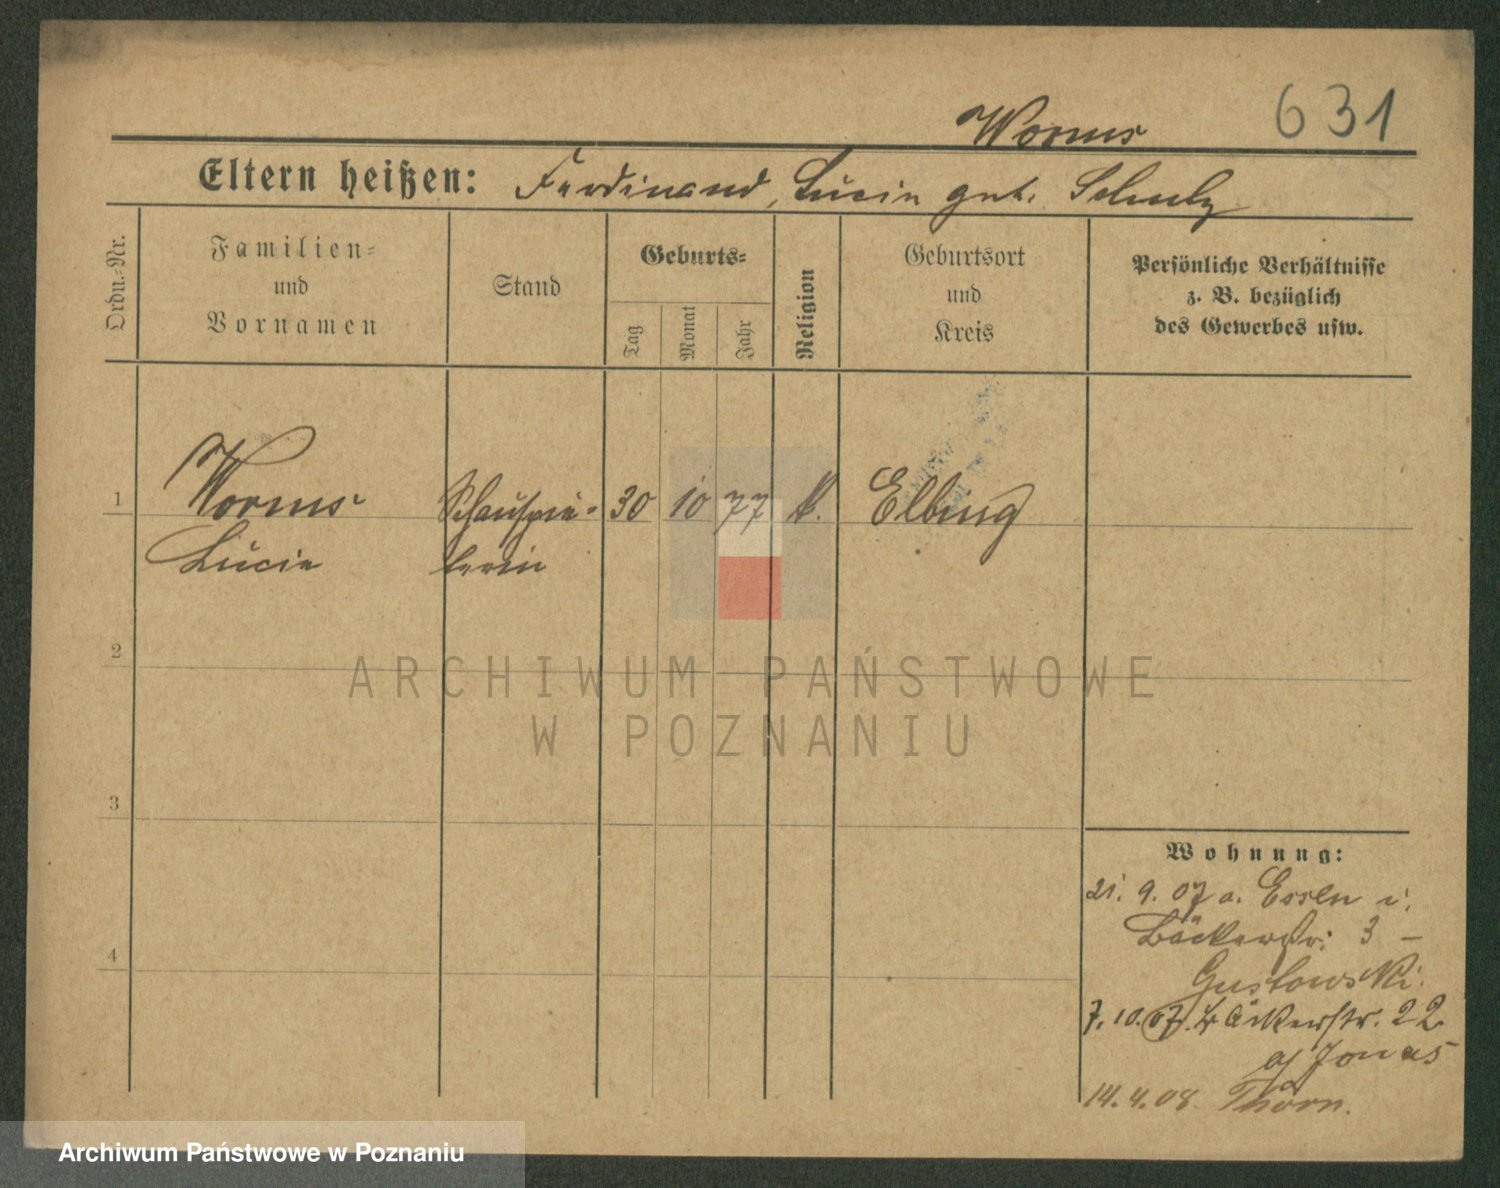 Worms 631
Eltern heißen: Ferdinand, Lucie geb. Schulz
Ordn.-Nr.
Familien-
und
Vornamen
Stand
Geburts-
Tag
Monat
Jahr
Religion
Geburtsort
und
Kreis
Persönliche Verhältnisse
z. B. bezüglich
des Gewerbes usw.
1 Worms Schauspie- 30 10 77 k. Elbing
Lucie lerin
2
ARCHIWUM PAŃSTWOWE
W POZNANIU
3
4
Wohnung:
21. 9. 07 a. Essen i.
Bäckerstr. 3 –
Guslowski.
7. 10. 07 Bäckerstr. 22
a/ Jonas
14. 4. 08. Thorn.
Archiwum Państwowe w Poznaniu